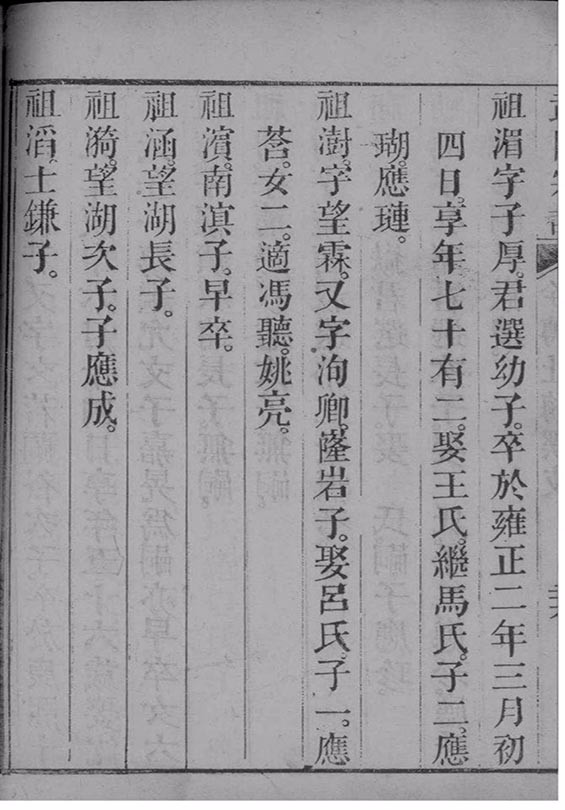 祖湄字子厚。君選幼子。卒於雍正二年三月初
四日。享年七十有二。娶王氏。繼馬氏。子二。應
瑚。應璉。
祖澍。字望霖。又字洵卿。隆岩子。娶呂氏。子一。應
荅。女二。適馮聽。姚亮。
祖濱。南滇子。早卒。
祖涵。望湖長子。
祖漪。望湖次子。子應成。
祖滔。士鎌子。